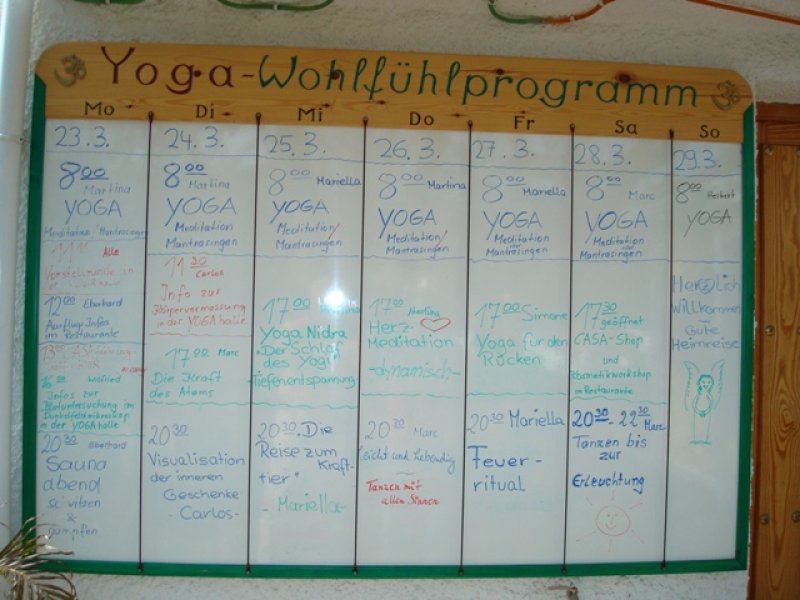 Yoga-Wohlfühlprogramm
Mo
23.3.
8 00
Martina
YOGA
Meditation Mantrasingen
11 11 Alle
Vorstellrunde in
der
12 00 Eberhard
Ausflug-Infos
im Restaurante
Infos zur
Blutuntersuchung im
Dunkelfeldmikroskop
in der YOGAhalle
20 30 Eberhard
Sauna
abend
schwitzen
&
dampfen
Di
24.3.
8 00
Martina
YOGA
Meditation
Mantrasingen
11 30
Carlos
Info zur
Körpervermessung
in der YOGA halle
17 00 Marc
Die Kraft
des Atems
20 30
Visualisation
der inneren
Geschenke
- Carlos -
Mi
25.3.
8 00 Mariella
YOGA
Meditation/
Mantrasingen
17 00
Yoga Nidra
"Der Schlaf
des Yogi"
Tiefenentspannung
20 30 "Die
Reise zum
Kraft-
tier"
- Mariella -
Do
26.3.
8 00 Martina
YOGA
Meditation/
Mantrasingen
17 00 Martina
Herz-
Meditation
- dynamisch -
20 30
Marc
leicht und lebendig
Tanzen mit
allen Sinnen
Fr
27.3.
8 00 Mariella
YOGA
Meditation
oder
Mantrasingen
17 00 Simone
Yoga für den
Rücken
20 30 Mariella
Feuer-
ritual
Sa
28.3.
8 00 Marc
YOGA
Meditation
oder
Mantrasingen
17 30
geöffnet
CASA-Shop
und
Kosmetikworkshop
im Restaurante
20 30 - 22 30
Marc
Tanzen bis
zur
Erleuchtung
So
29.3.
8 00 Herbert
YOGA
Herzlich
Willkommen
~
Gute
Heimreise